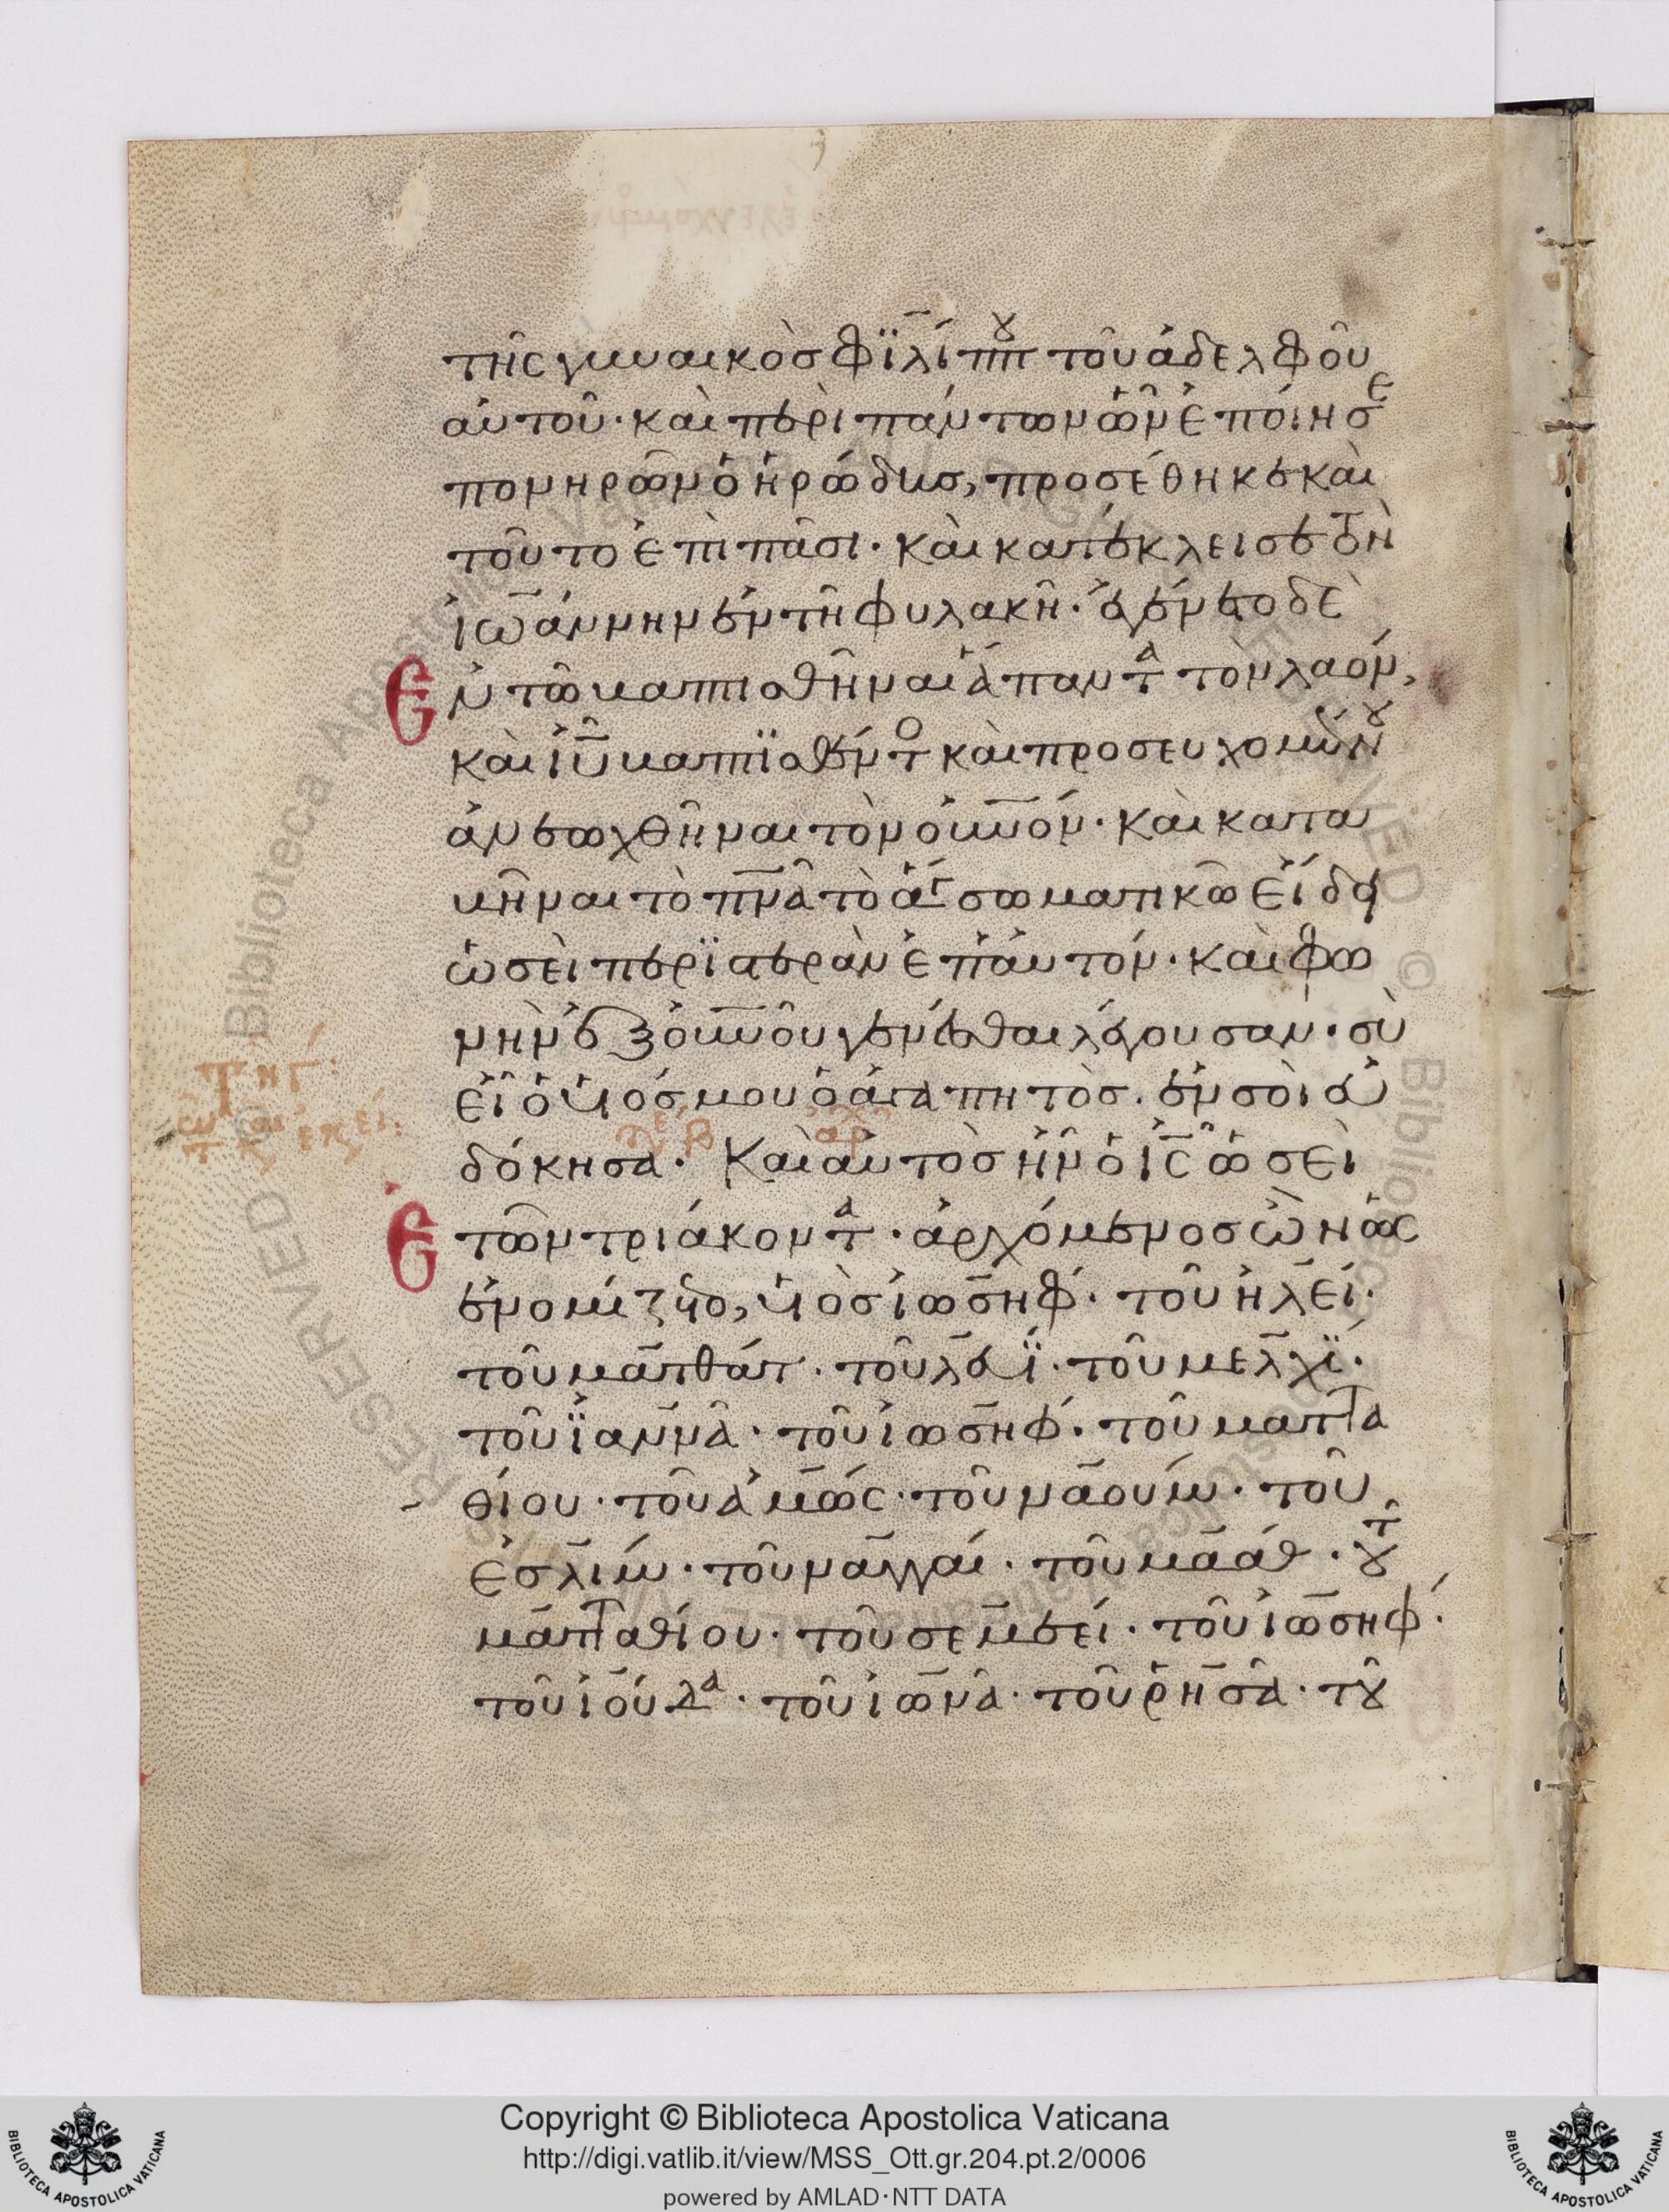 τῆς γυναικὸσ φϊλίππου τοῦ ἀδελφοῦ
αὐτοῦ· καὶ περὶ πάντων ὧν ἐποίησε
πονηρῶν ὁ ἡρώδης, προσέθηκε καὶ
τοῦτο ἐπὶ πᾶσι· καὶ κατέκλεισε τὸν
ἰωάννην ἐν τῆ φυλακῆ· ἐγένετο δὲ
Ἐν τῶ βαπτισθῆναι ἅπαντα τὸν λαόν,
καὶ ἰῦ βαπτϊσθέντο καὶ προσευχομένου
ἀνεωχθῆναι τὸν οὐνόν· καὶ κατα
βῆναι τὸ πνᾶ τὸ ἅγ σωματικῶ εἴδει
ὡσεὶ περϊστερὰν ἐπ' αὐτόν· καὶ φω
νὴν ἐξ οὐνοῦ γενέσθαι λέγουσαν· σὺ
εἶ ὁ ὑιόσ μου ὁ ἀγαπητὸσ· ἐν σοὶ εὐ
δόκησα· Καὶ αὐτὸσ ἦν ὁ ἰς ὡσεὶ
ἐτῶν τριάκοντα· ἀρχόμενοσ ὢν ὡς
ἐνομίζετο, ὑιὸσ ἰωσήφ· τοῦ ἡλεί·
τοῦ ματθάτ· τοῦ λευΐ· τοῦ μελχΐ·
τοῦ ϊαννᾶ· τοῦ ἰωσήφ· τοῦ ματτα
θίου· τοῦ ἀμώς· τοῦ ναούμ· τοῦ
ἐσλίμ· τοῦ ναγγαί· τοῦ μαάθ· τοῦ
ματταθίου· τοῦ σεμεεί· τοῦ ἰωσήφ·
τοῦ ἰούδα· τοῦ ἰωνᾶ· τοῦ ῥησᾶ· τοῦ
Copyright © Biblioteca Apostolica Vaticana
http://digi.vatlib.it/view/MSS_Ott.gr.204.pt.2/0006
powered by AMLAD·NTT DATA
BIBLIOTECA APOSTOLICA VATICANA
BIBLIOTECA APOSTOLICA VATICANA